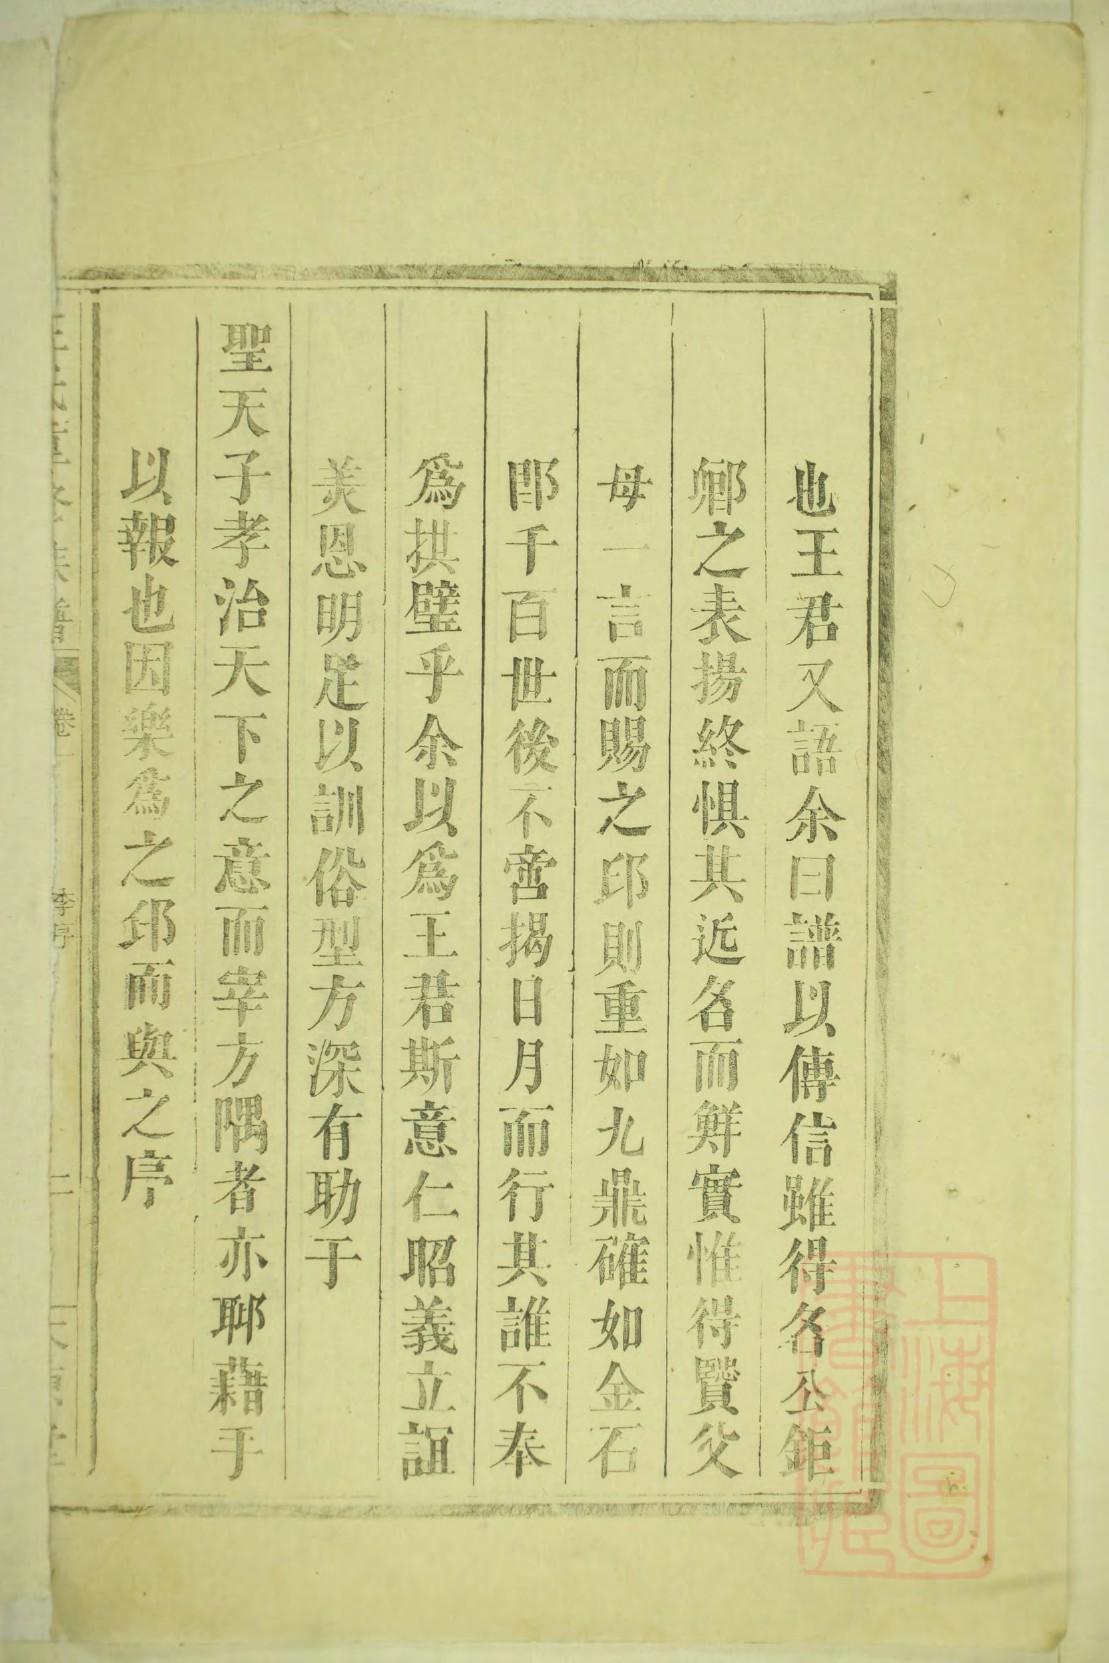 也王君又語余曰譜以傳信雖得名公鉅
鄉之表揚終惧其近名而鮮實惟得賢父
母一言而賜之印則重如九鼎確如金石
即千百世後不啻揭日月而行其誰不奉
為拱璧乎余以為王君斯意仁昭義立誼
美恩明足以訓俗型方深有助于
聖天子孝治天下之意而宰方隅者亦聊藉于
以報也因樂為之印而與之序
族譜
卷一
李序
二
上海圖書館藏